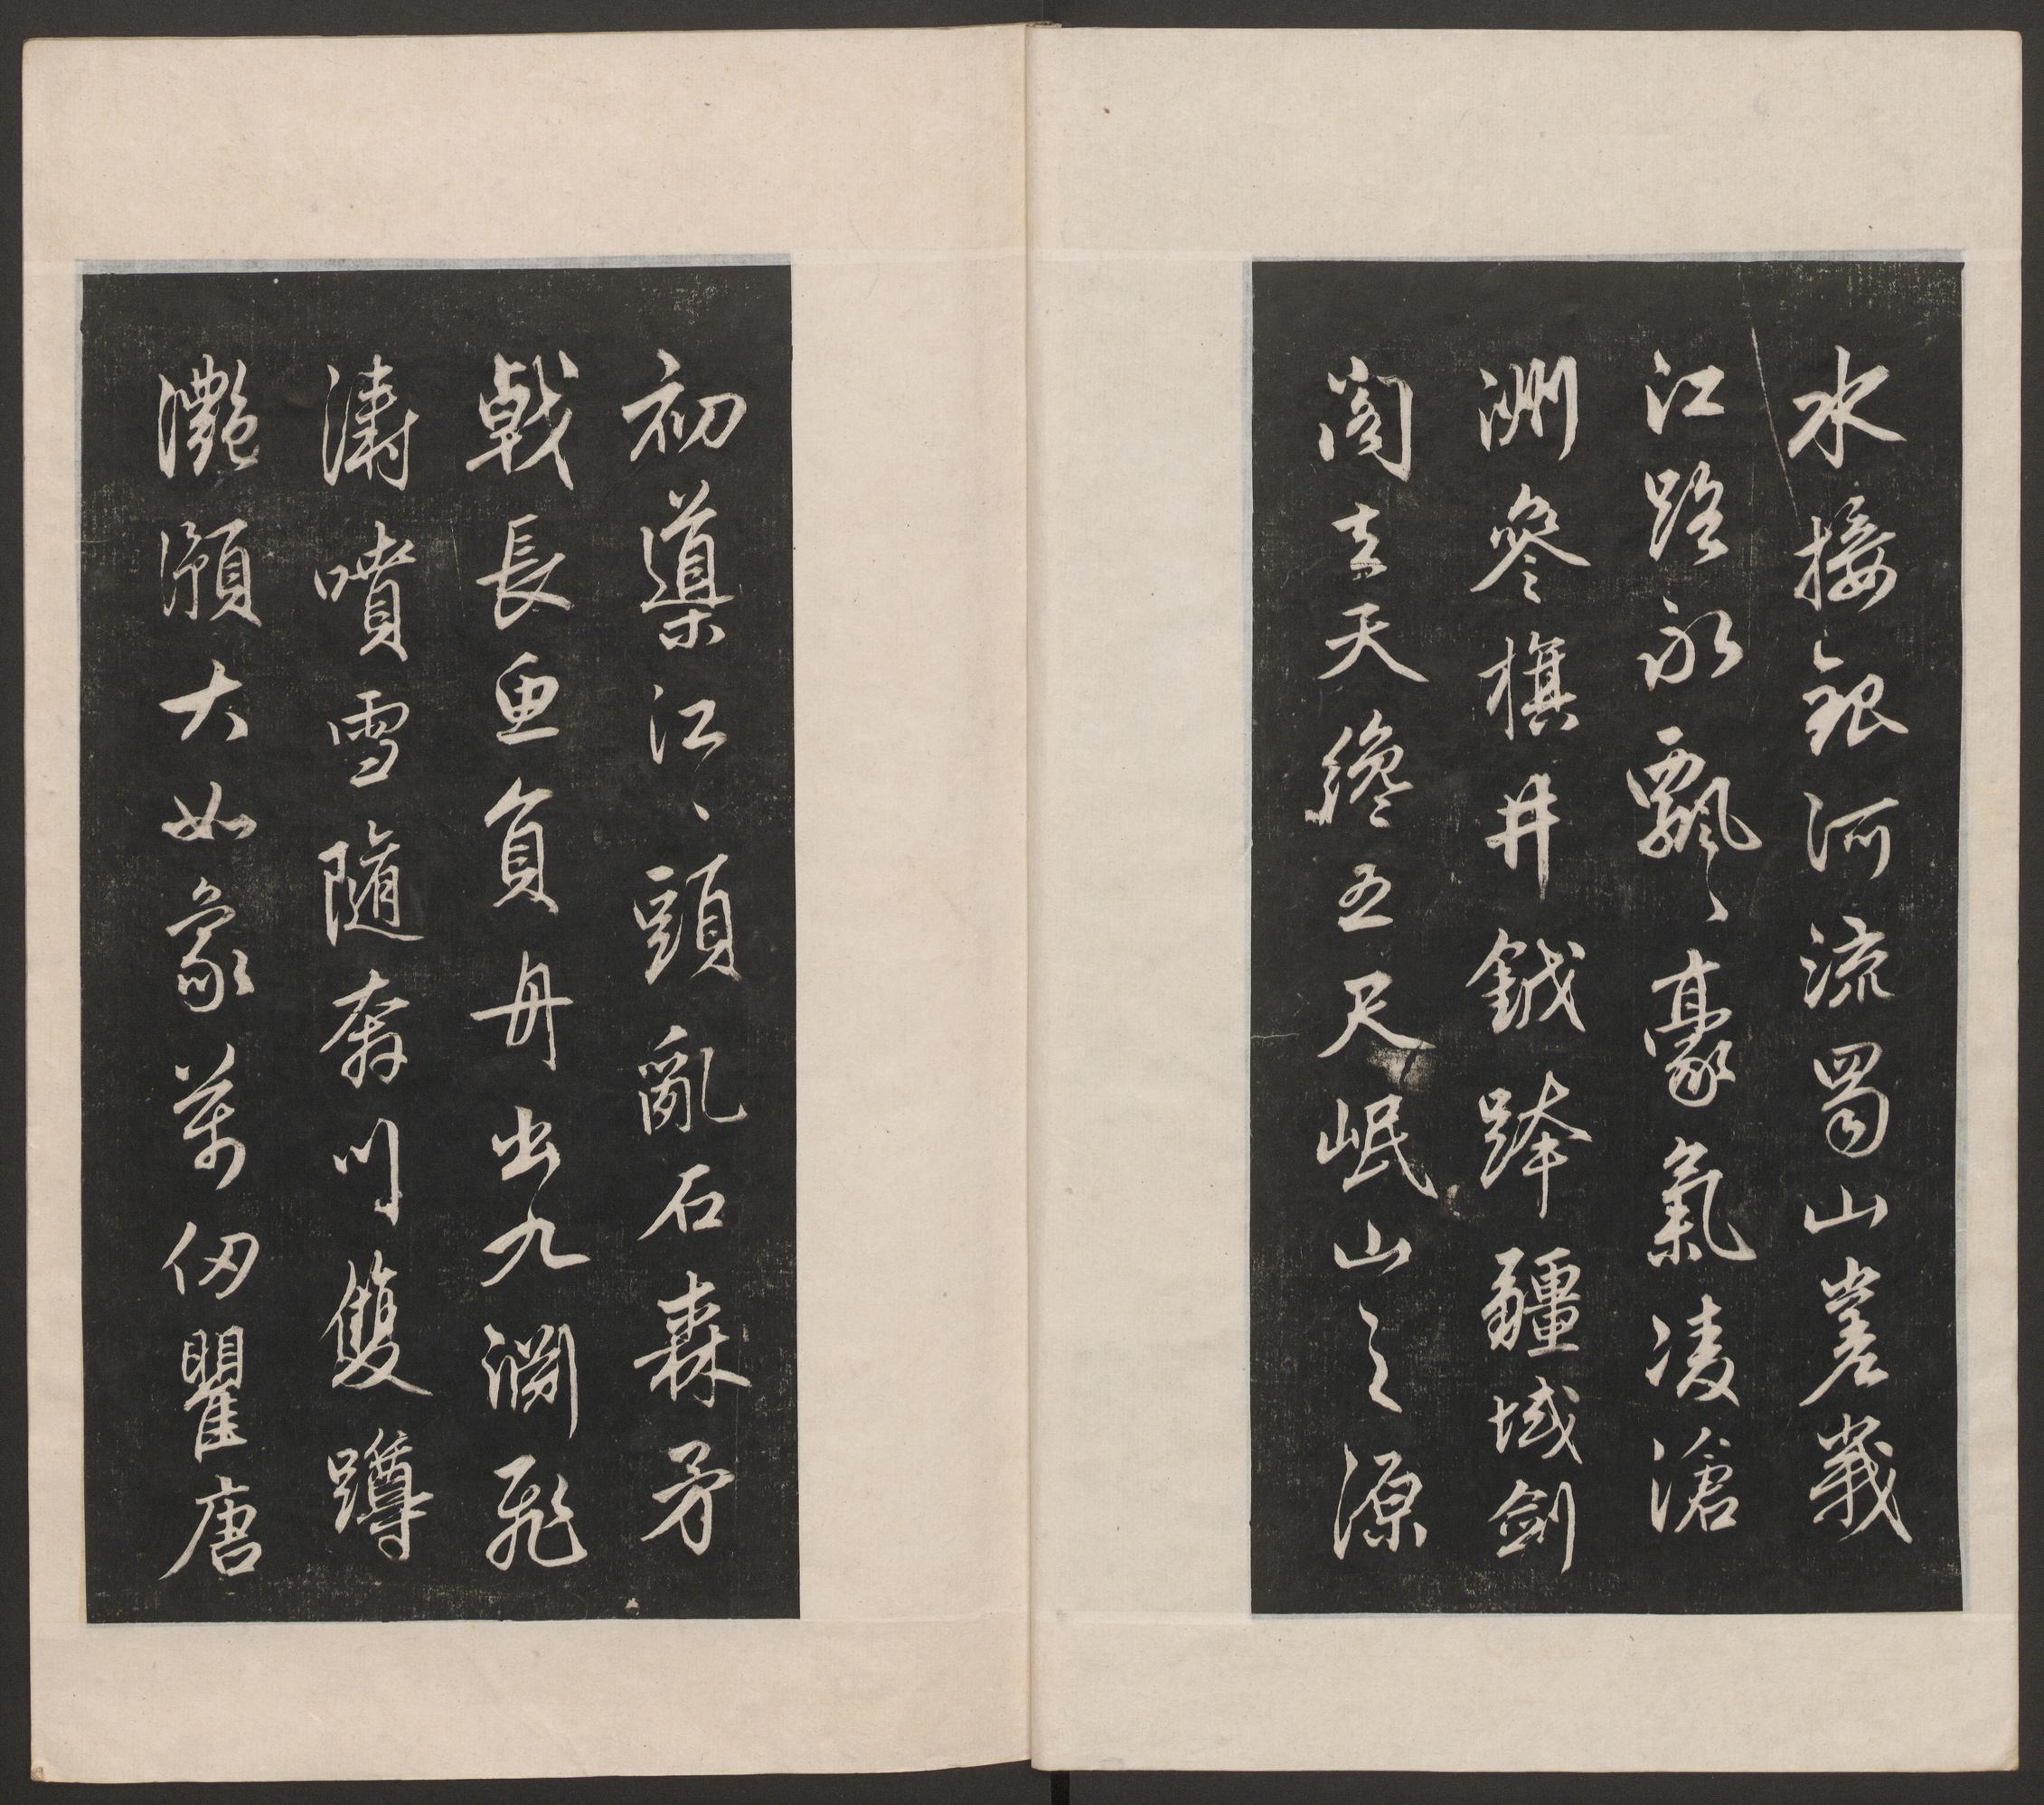 水接銀河流蜀山嵳峩
江路永飄〻豪氣凌滄
洲參旗井鉞跨疆域劍
閣去天纔五尺岷山之源
初導江〻頭亂石森矛
戟長魚負舟出九淵飛
濤噴雪隨夔門雙蹲
灔澦大如象萬仞瞿唐